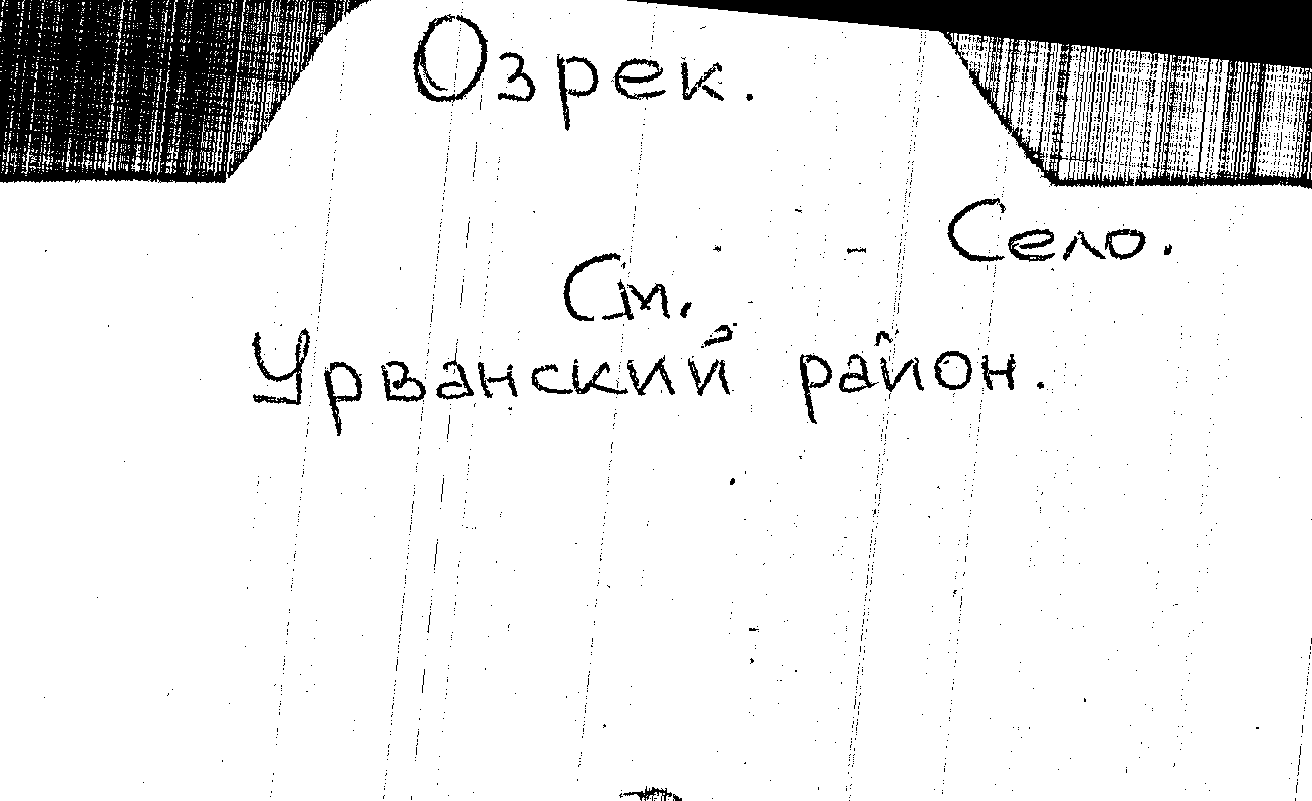 Озрек.
Село.
См.
Урванский район.